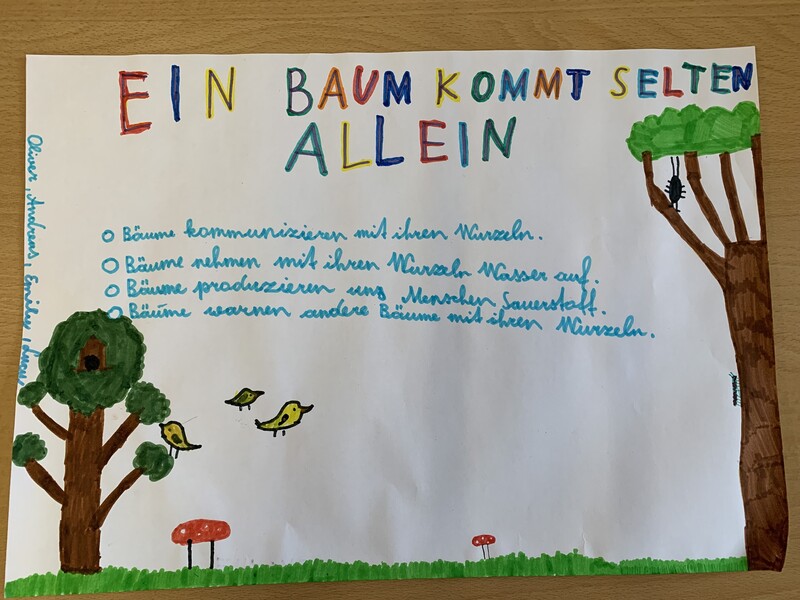 EIN BAUM KOMMT SELTEN
ALLEIN
Bäume kommunizieren mit ihren Wurzeln.
Bäume nehmen mit ihren Wurzeln Wasser auf.
Bäume produzieren uns Menschen Sauerstoff.
Bäume warnen andere Bäume mit ihren Wurzeln.
Oliver, Andreas, Emilio,